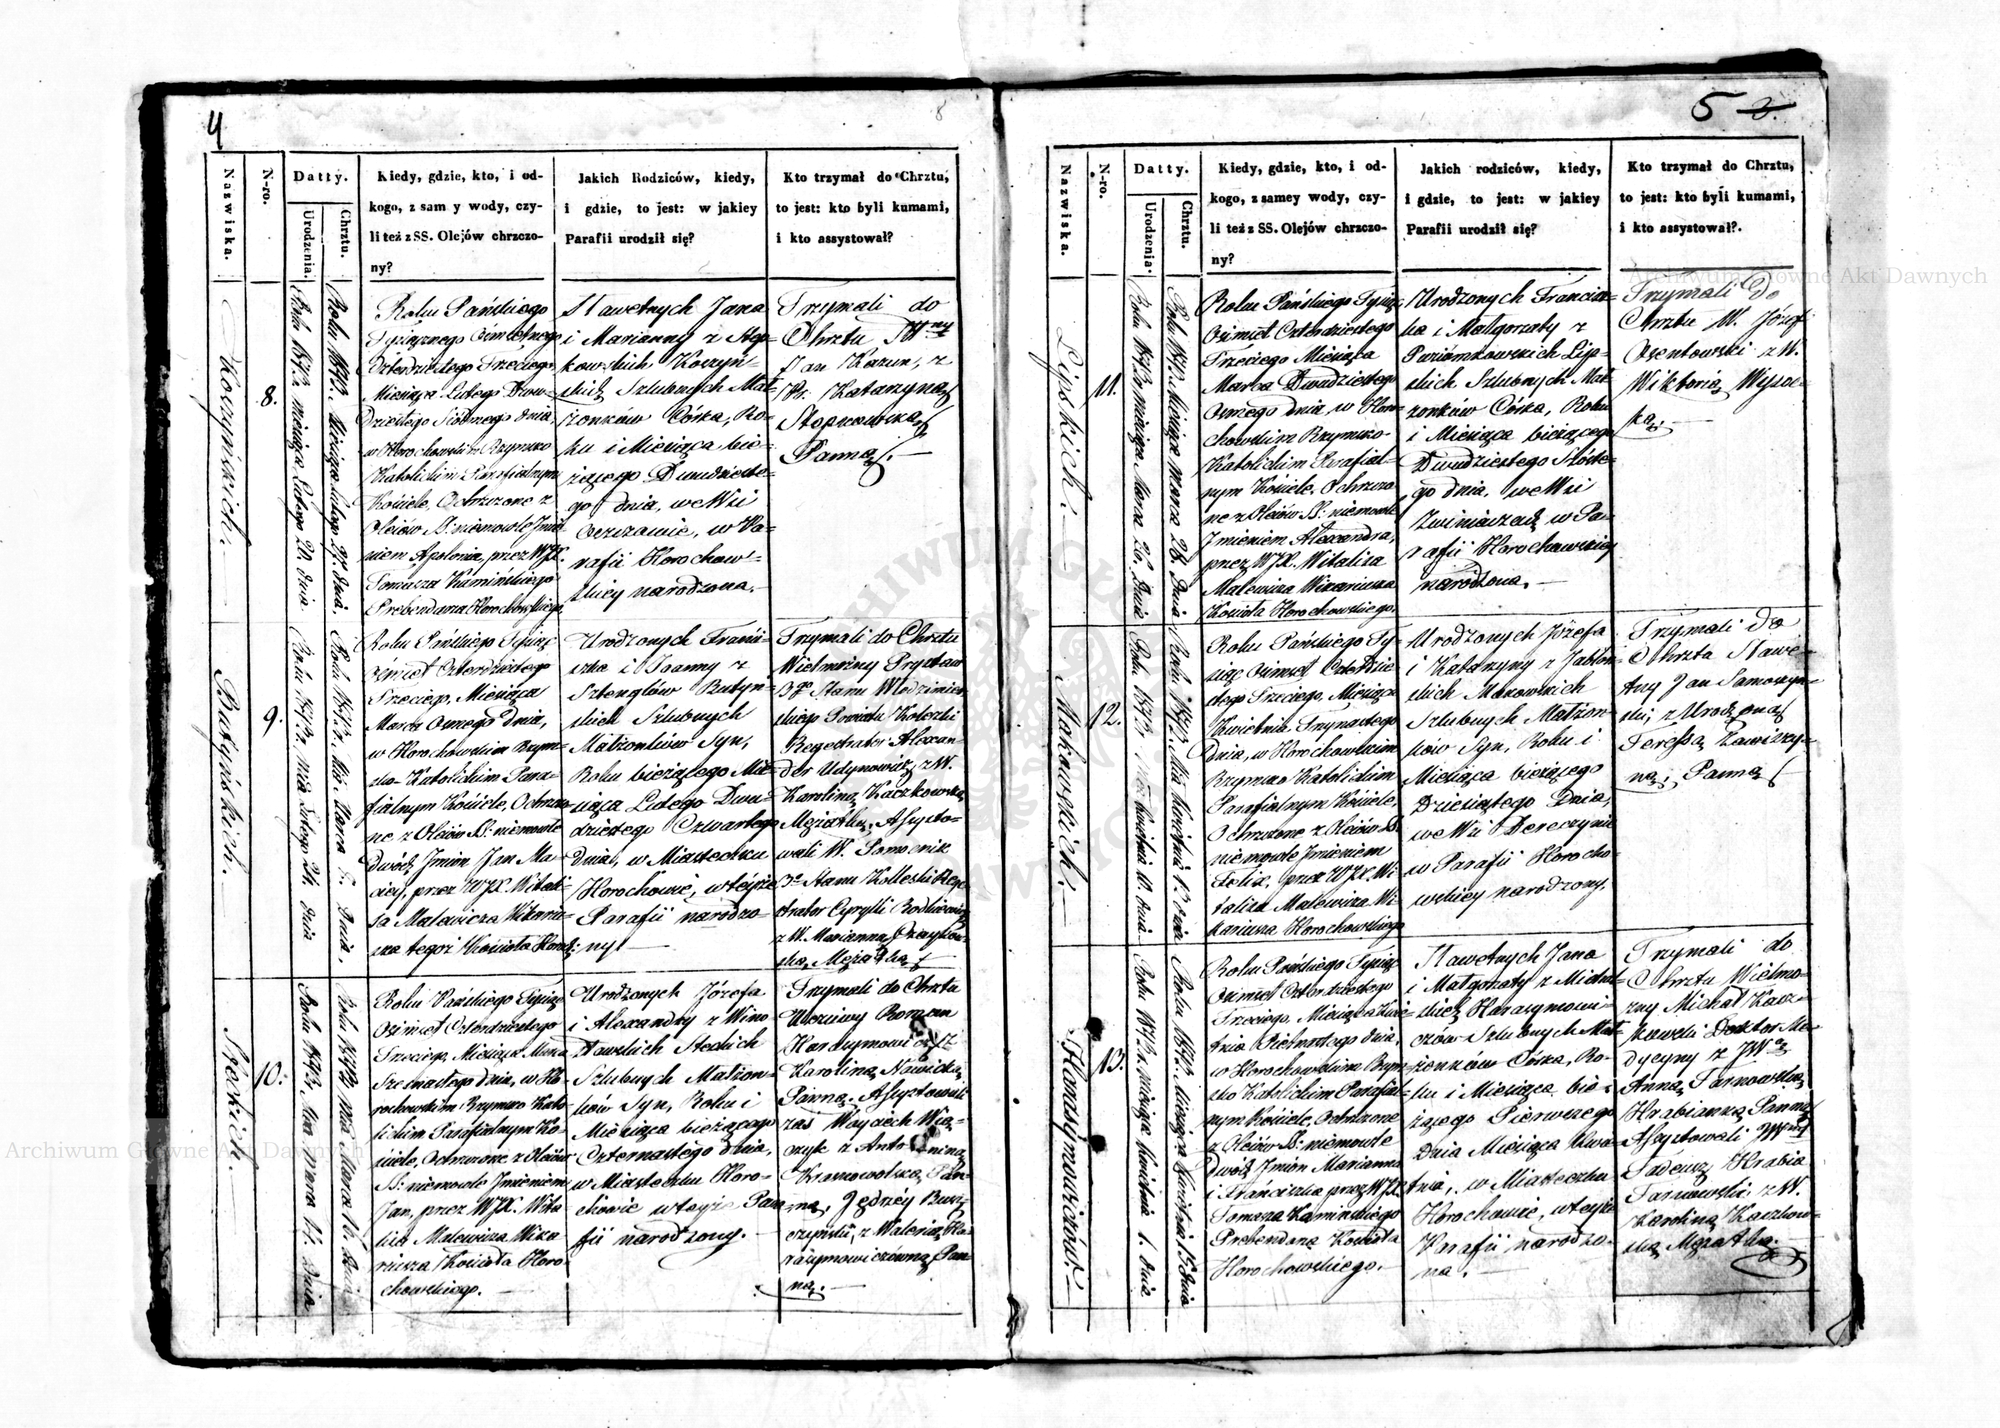 4
8
Nazwiska.
N-ro.
Datty.
Urodzenia.
Chrztu.
Kiedy, gdzie, kto, i od-
kogo, z sam y wody, czy-
li też z SS. Olejów chrzczo-
ny?
Jakich Rodziców, kiedy,
i gdzie, to jest: w jakiey
Parafii urodził się?
Kto trzymał do Chrztu,
to jest: kto byli kumami,
i kto assystował?
Koszyńskich.
8.
Roku 1843. miesiąca Lutego 20. dnia
Roku 1843. Miesiąca Lutego 27. dnia.
Roku Pańskiego
Tysiącznego Ośmsetnego
Czterdziestego Trzeciego,
Miesiąca Lutego Dwu-
Dziestego Siódmego dnia,
w Horochowskim Rzymsko
Katolickim Parafialnym
Kościele, Ochrzczone z
Oleiów S: niemowle Imie-
niem Apolonia, przez WJX.
Tomasza Kamińskiego
Prebendarza Horochowskiego.
Sławetnych Jana
i Marianny z Stęp-
kowskich Koszyń-
skich Szlubnych Mał-
żonków Córka, Ro-
ku i Miesiąca bie-
żącego Dwudzieste-
go dnia, we Wsi
w Pa-
rafii Horochow-
skiey narodzona.
Trzymali do
Chrztu Wny
Jan z
Katarzyną
Stępkowską
Panną.
Butyńskich.
9.
Roku 1843. mca Lutego 24. dnia
Roku 1843. Mca Marca 8. Dnia.
Roku Pańskiego Tysiąc
Ośmset Czterdziestego
Trzeciego, Miesiąca
Marca Osmego Dnia,
w Horochowskim Rzym-
sko-Katolickim Para-
fialnym Kościele, Ochrzczo-
ne z Oleiów SS: niemowle
Dwóch Imion Jan Ma-
ciey, przez WJX. Witali-
sa Malewicza Wikariu-
sza tegoż Kościoła Horoch:
Urodzonych Franci-
szka i Joanny z
Sztenglów Butyń-
skich Szlubnych
Małżonków Syn,
Roku bieżącego Mie-
siąca Lutego Dwu-
dziestego Czwartego
Dnia, w Miasteczku
Horochowie, w teyże
Parafii narodzo-
ny
Trzymali do Chrztu
Wielmożny Prystaw
3go Stanu Włodzimier-
skiego Powiatu Koleski
Regestrator Alexan-
der Udynowicz, z W.
Karoliną Kaczkowską
Mężatką, Assysto-
wali W. Pomocnik
3o Stanu Kolleski Rege-
strator Cyrylli
z W. Marianną
ską, Mężatką
Steckich.
10.
Roku 1843. Mca Marca 14. Dnia
Roku 1843. Mca Marca 16. Dnia
Roku Pańskiego Tysiąc
Ośmset Czterdziestego
Trzeciego, Miesiąca Marca
Szesnastego dnia, w Ho-
rochowskim Rzymsko Kato-
lickim Parafialnym Ko-
ściele, Ochrzczone z Oleiów
SS: niemowle Imieniem
Jan, przez WJX. Wita-
lisa Malewicza Wika-
riusza Kościoła Horo-
chowskiego.
Urodzonych Józefa
i Alexandry z Wino-
sławskich Steckich
Szlubnych Małżon-
ków Syn, Roku i
Miesiąca bieżącego
Czternastego dnia,
w Miasteczku Horo-
chowie w teyże Para
fii narodzony.
Trzymali do Chrztu
Uczciwy Roman
Harasymowicz z
Karoliną
Panną. Assystowali
zaś Woyciech
z Antoniną
Krasnowolską, Pan-
ną, Jędrzey
z Walerią Ha-
rasymowiczówną Pan-
ną.
5 3.
Nazwiska.
N-ro.
Datty.
Urodzenia.
Chrztu.
Kiedy, gdzie, kto, i od-
kogo, z samey wody, czy-
li też z SS. Olejów chrzczo-
ny?
Jakich rodziców, kiedy,
i gdzie, to jest: w jakiey
Parafii urodził się?
Kto trzymał do Chrztu,
to jest: kto byli kumami,
i kto assystował?.
Lipskich.
11.
Roku 1843. miesiąca Marca 26. Dnia
Roku 1843. Miesiąca Marca 28. Dnia
Roku Pańskiego Tysiąc
Ośmset Czterdziestego
Trzeciego Miesiąca
Marca Dwudziestego
Osmego dnia, w Horo-
chowskim Rzymsko-
Katolickim Parafial-
nym Kościele, Ochrzczo-
ne z Oleiów SS: niemowle
Imieniem Alexandra,
przez WJX. Witalisa
Malewicza Wikariusza
Kościoła Horochowskiego.
Urodzonych Francisz-
ka i Małgorzaty z
Poziomkowskich Lip-
skich Szlubnych Mał-
żonków Córka, Roku
i Miesiąca bieżącego
Dwudziestego Szóste-
go dnia, we Wsi
w Pa-
rafii Horochowskiey
narodzona.
Trzymali Do
Chrztu W. Józef
z W.
Wiktorią Wysoc-
ką.
Makowskich.
12.
Roku 1843. Mca Kwietnia 10. dnia
Roku 1843. Mca Kwietnia 13. dnia
Roku Pańskiego Ty-
siąc Ośmset Czterdzie-
stego Trzeciego, Miesiąca
Kwietnia Trzynastego
Dnia, w Horochowskim
Rzymsko Katolickim
Parafialnym Kościele,
Ochrzczone z Oleiów SS:
niemowle Imieniem
Felix, przez WJX. Wi-
talisa Malewicza Wi-
kariusza Horochowskiego
Urodzonych Józefa
i Katarzyny z Jabłoń-
skich Makowskich
Szlubnych Małżon-
ków Syn, Roku i
Miesiąca bieżącego
Dziesiątego Dnia,
we Wsi Dereczynie
w Parafii Horocho-
wskiey narodzony.
Trzymali Do
Chrztu Sławe-
tny Jan Samoszyń-
ski, z Urodzoną
Teressą
ną, Panną
Harasymowiczów.
13.
Roku 1843. miesiąca Kwietnia 1. dnia
Roku 1843. Miesiąca Kwietnia 15. dnia
Roku Pańskiego Tysiąc
Ośmset Czterdziestego
Trzeciego, Miesiąca Kwie-
tnia Piętnastego dnia,
w Horochowskim Rzym-
sko Katolickim Parafial-
nym Kościele, Ochrzczone
z Oleiów SS: niemowle
Dwóch Imion Marianna
i Franciszka przez WJX.
Tomasza Kamińskiego
Prebendarza Kościoła
Horochowskiego.
Sławetnych Jana
i Małgorzaty z Michal-
skich Harasymowi-
czów Szlubnych Mał-
żonków Córka, Ro-
ku i Miesiąca bie-
żącego Pierwszego
Dnia Miesiąca Kwie-
tnia, w Miasteczku
Horochowie, w teyże
Parafii narodzo-
na.
Trzymali do
Chrztu Wielmo-
żny Michał Kacz-
kowski Doktor Me-
dycyny z JWą
Anną Tarnowską
Hrabianką Panną
Assystowali JWny
Tadeusz Hrabia
Tarnowski z W.
Karoliną Kaczkow-
ską Mężatką.
Archiwum Główne Akt Dawnych
Archiwum Główne Akt Dawnych